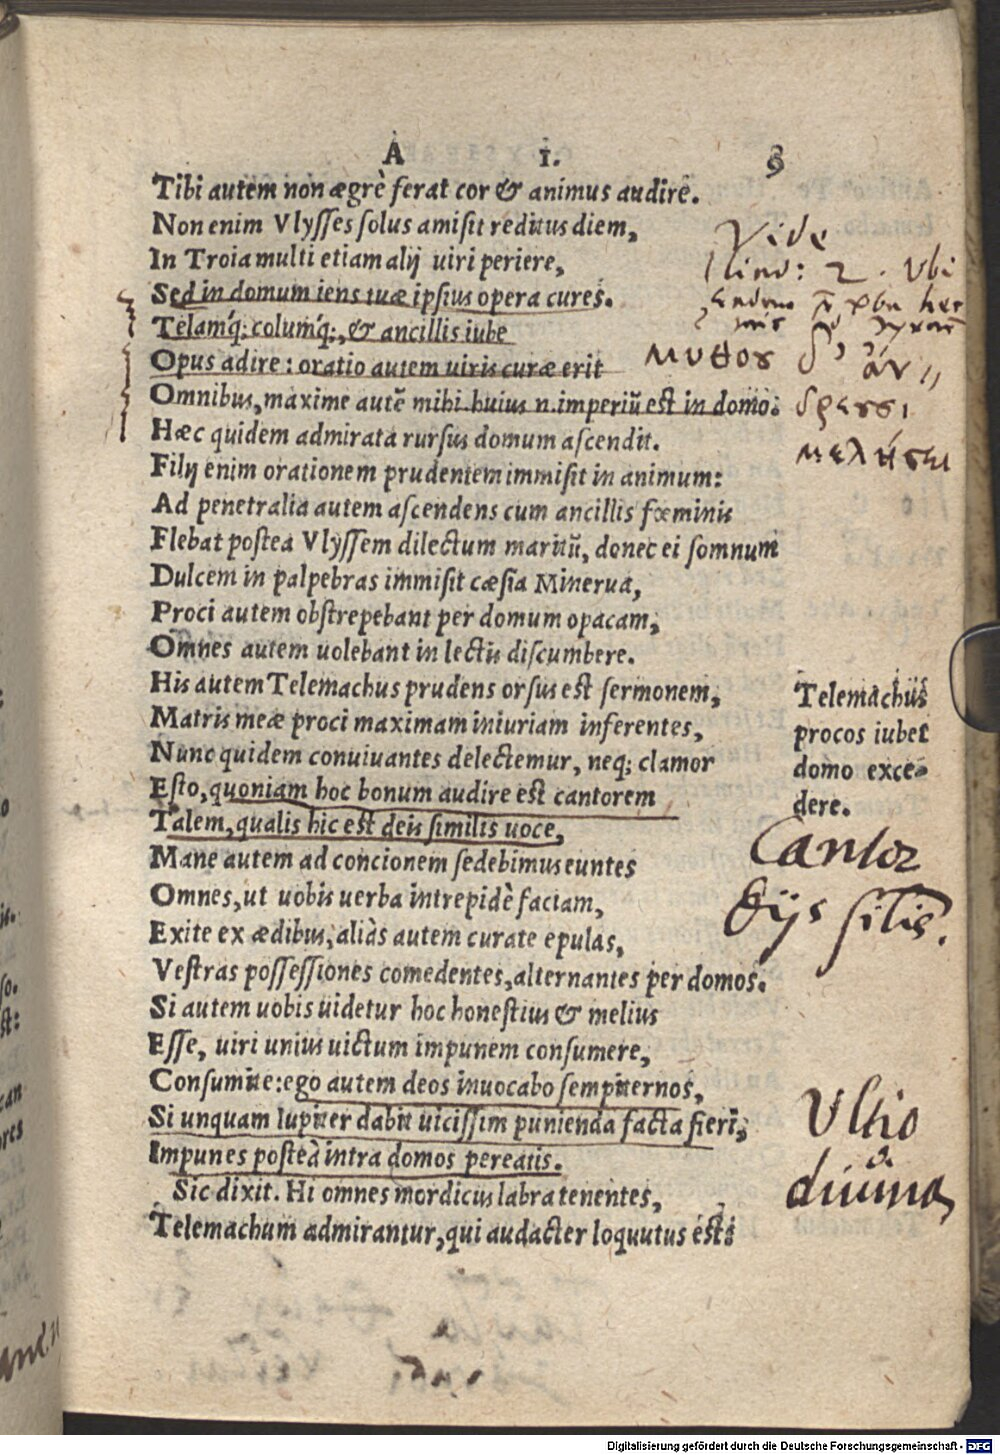 A 1. 9
Tibi autem non ægrè ferat cor & animus audire.
Non enim Vlysses solus amisit reditus diem,
In Troia multi etiam alij uiri periere,
Sed in domum iens tuæ ipsius opera cures.
Telamq́; columq́;, & ancillis iube
Opus adire: oratio autem uiris curæ erit
Omnibus, maxime autē mihi huius n. imperiū est in domo.
Hæc quidem admirata rursus domum ascendit.
Filij enim orationem prudentem immisit in animum:
Ad penetralia autem ascendens cum ancillis fœminis
Flebat postea Vlyssem dilectum maritū, donec ei somnum
Dulcem in palpebras immisit cæsia Minerua,
Proci autem obstrepebant per domum opacam,
Omnes autem uolebant in lectis discumbere.
His autem Telemachus prudens orsus est sermonem,
Matris meæ proci maximam iniuriam inferentes,
Nunc quidem conuiuantes delectemur, neq; clamor
Esto, quoniam hoc bonum audire est cantorem
Talem, qualis hic est deis similis uoce,
Mane autem ad concionem sedebimus euntes
Omnes, ut uobis uerba intrepidè faciam,
Exite ex ædibus, aliàs autem curate epulas,
Vestras possessiones comedentes, alternantes per domos.
Si autem uobis uidetur hoc honestius & melius
Esse, uiri unius uictum impunem consumere,
Consumite: ego autem deos inuocabo sempiternos,
Si unquam Iupiter dabit uicissim punienda facta fieri,
Impunes posteà intra domos pereatis.
Sic dixit. Hi omnes mordicus labra tenentes,
Telemachum admirantur, qui audacter loquutus est:
Vide
Iliad: Z. Vbi
μύθου δ' ἀν
δρεσσι
μελήσει
Telemachus
procos iubet
domo exce-
dere.
Cantor
Dijs silis.
Vltio
diuina
Digitalisierung gefördert durch die Deutsche Forschungsgemeinschaft - DFG